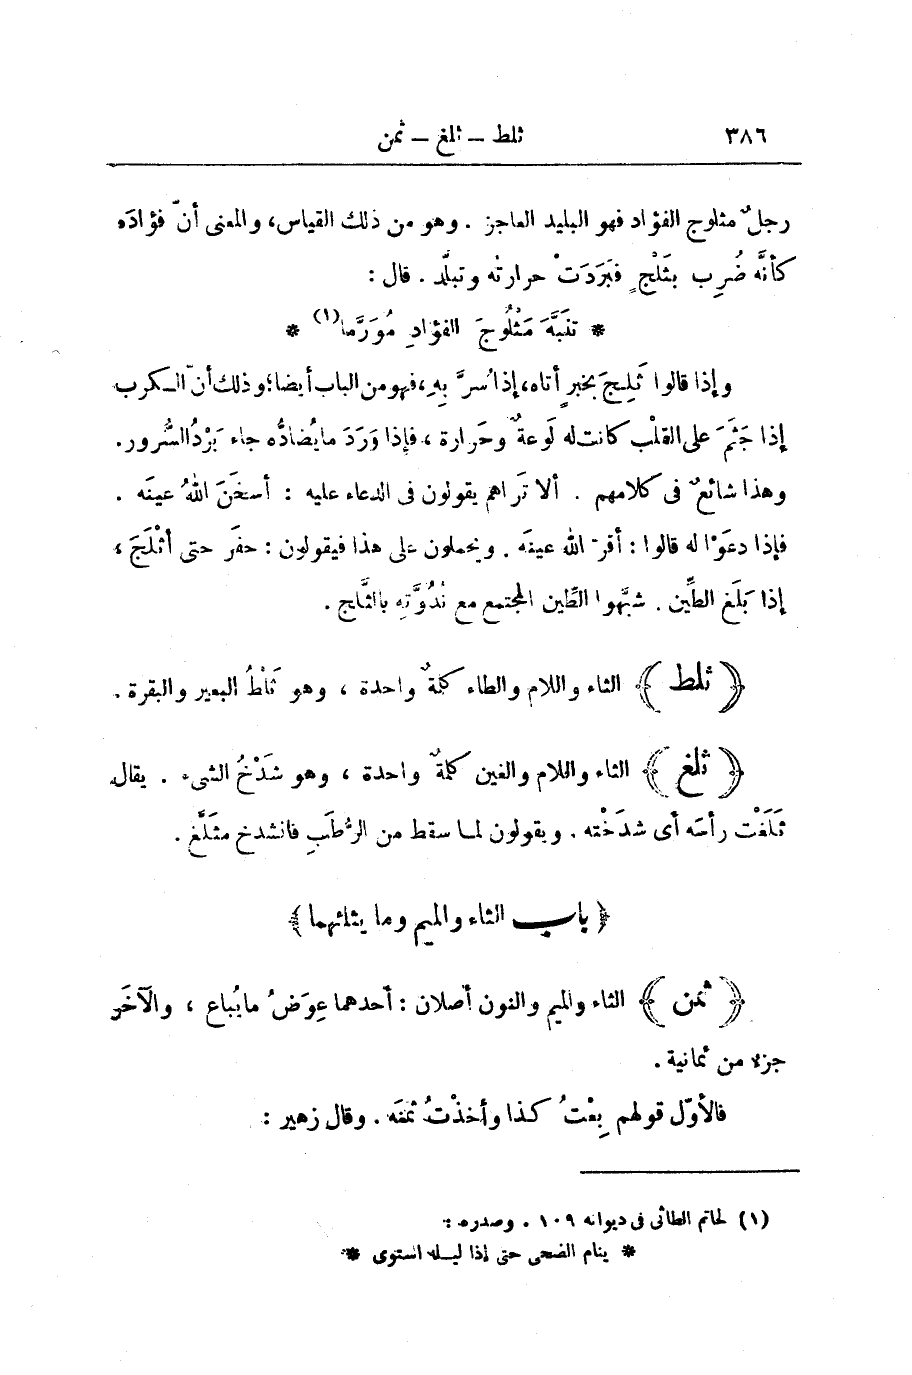 ٣٨٦ ثلط ــ ثلغ ــ ثمن
رجلٌ مثلوج الفؤاد فهو البليد العاجز . وهو من ذلك القياس، والمعنى أنّ فؤادَه
كأنَّه ضُرِب بثَلْجٍ فبَرَدَتْ حرارتُه وتبلَّد . قال :
* تنَبَّهَ مَثْلُوجَ الفؤادِ مُوَرَّما(١) *
وإذا قالوا ثَلِجَ بخبرٍ أتاه، إذا سُرَّ بِهِ، فهو من الباب أيضا؛ وذلك أنّ الكرب
إذا جَثَمَ على القلْب كانت له لَوعةٌ وحَرارة ، فإذا وَرَدَ ما يُضادُّه جاء بَرْدُ السُّرور.
وهذا شائعٌ فى كلامهم . ألا تَراهم يقولون فى الدعاء عليه : أسخَنَ اللهُ عينَه .
فإذا دعَوْا له قالوا : أقرّ الله عينَه . ويحملون على هذا فيقولون : حفَر حتى أثْلَجَ ،
إذا بَلَغ الطيِّن . شبَّهوا الطِّين المجتمع مع نُدُوَّتِهِ بالثَّلج .
﴿ ثلط ﴾ الثاء واللام والطاء كلمةٌ واحدة ، وهو ثَلْطُ البعير والبقرة .
﴿ ثلغ ﴾ الثاء واللام والغين كلمةٌ واحدة ، وهو شَدْخُ الشىء . يقال
ثَلَغْت رأسَه أى شدَخْته . ويقولون لما سقط من الرُّطَبِ فانشدخ مثلَّغ .
﴿ باب الثاء والميم وما يثلثهما ﴾
﴿ ثمن ﴾ الثاء والميم والنون أصلان : أحدهما عِوَضُ ما يُباع ، والآخَر
جزء من ثمانية .
فالأوّل قولهم بِعْتُ كذا وأخذْتُ ثمنَه . وقال زهير :
(١) لحاتم الطائى فى ديوانه ١٠٩ . وصدره :
* ينام الضحى حتى إذا ليله استوى *